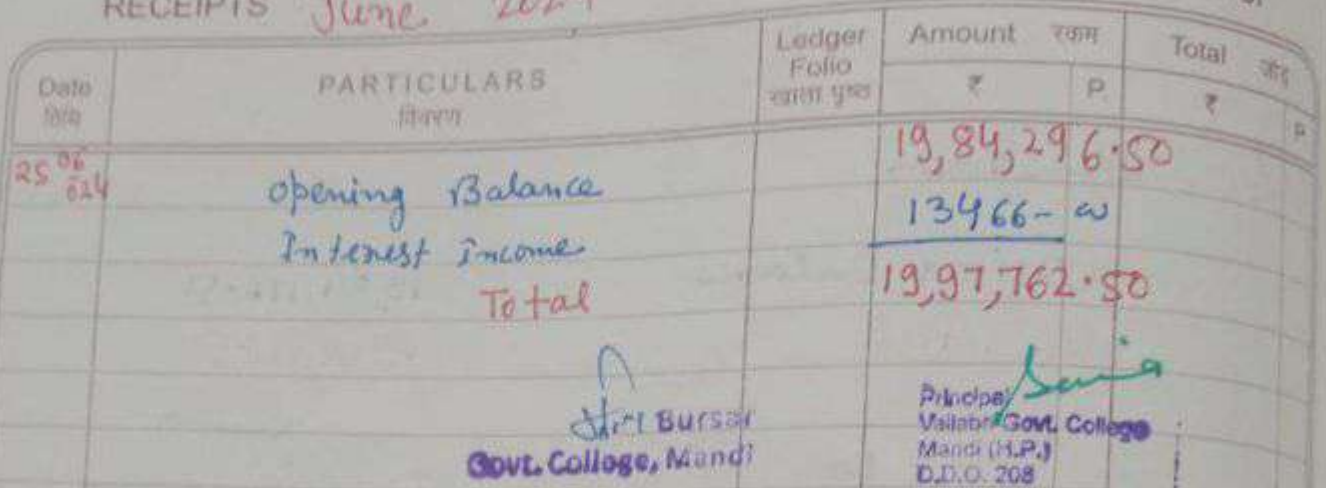 RECEIPTS June 2024
Date तिथि PARTICULARS विवरण Ledger Folio खाता पृष्ठ Amount रकम ₹ P. Total जोड़ ₹ P
25 06 024 Opening Balance 19,84,296.50
Interest Income 13466-00
Total 19,97,762.50
Bursar
Govt. College, Mandi
Principal
Vallabh Govt. College
Mandi (H.P.)
D.D.O. 208